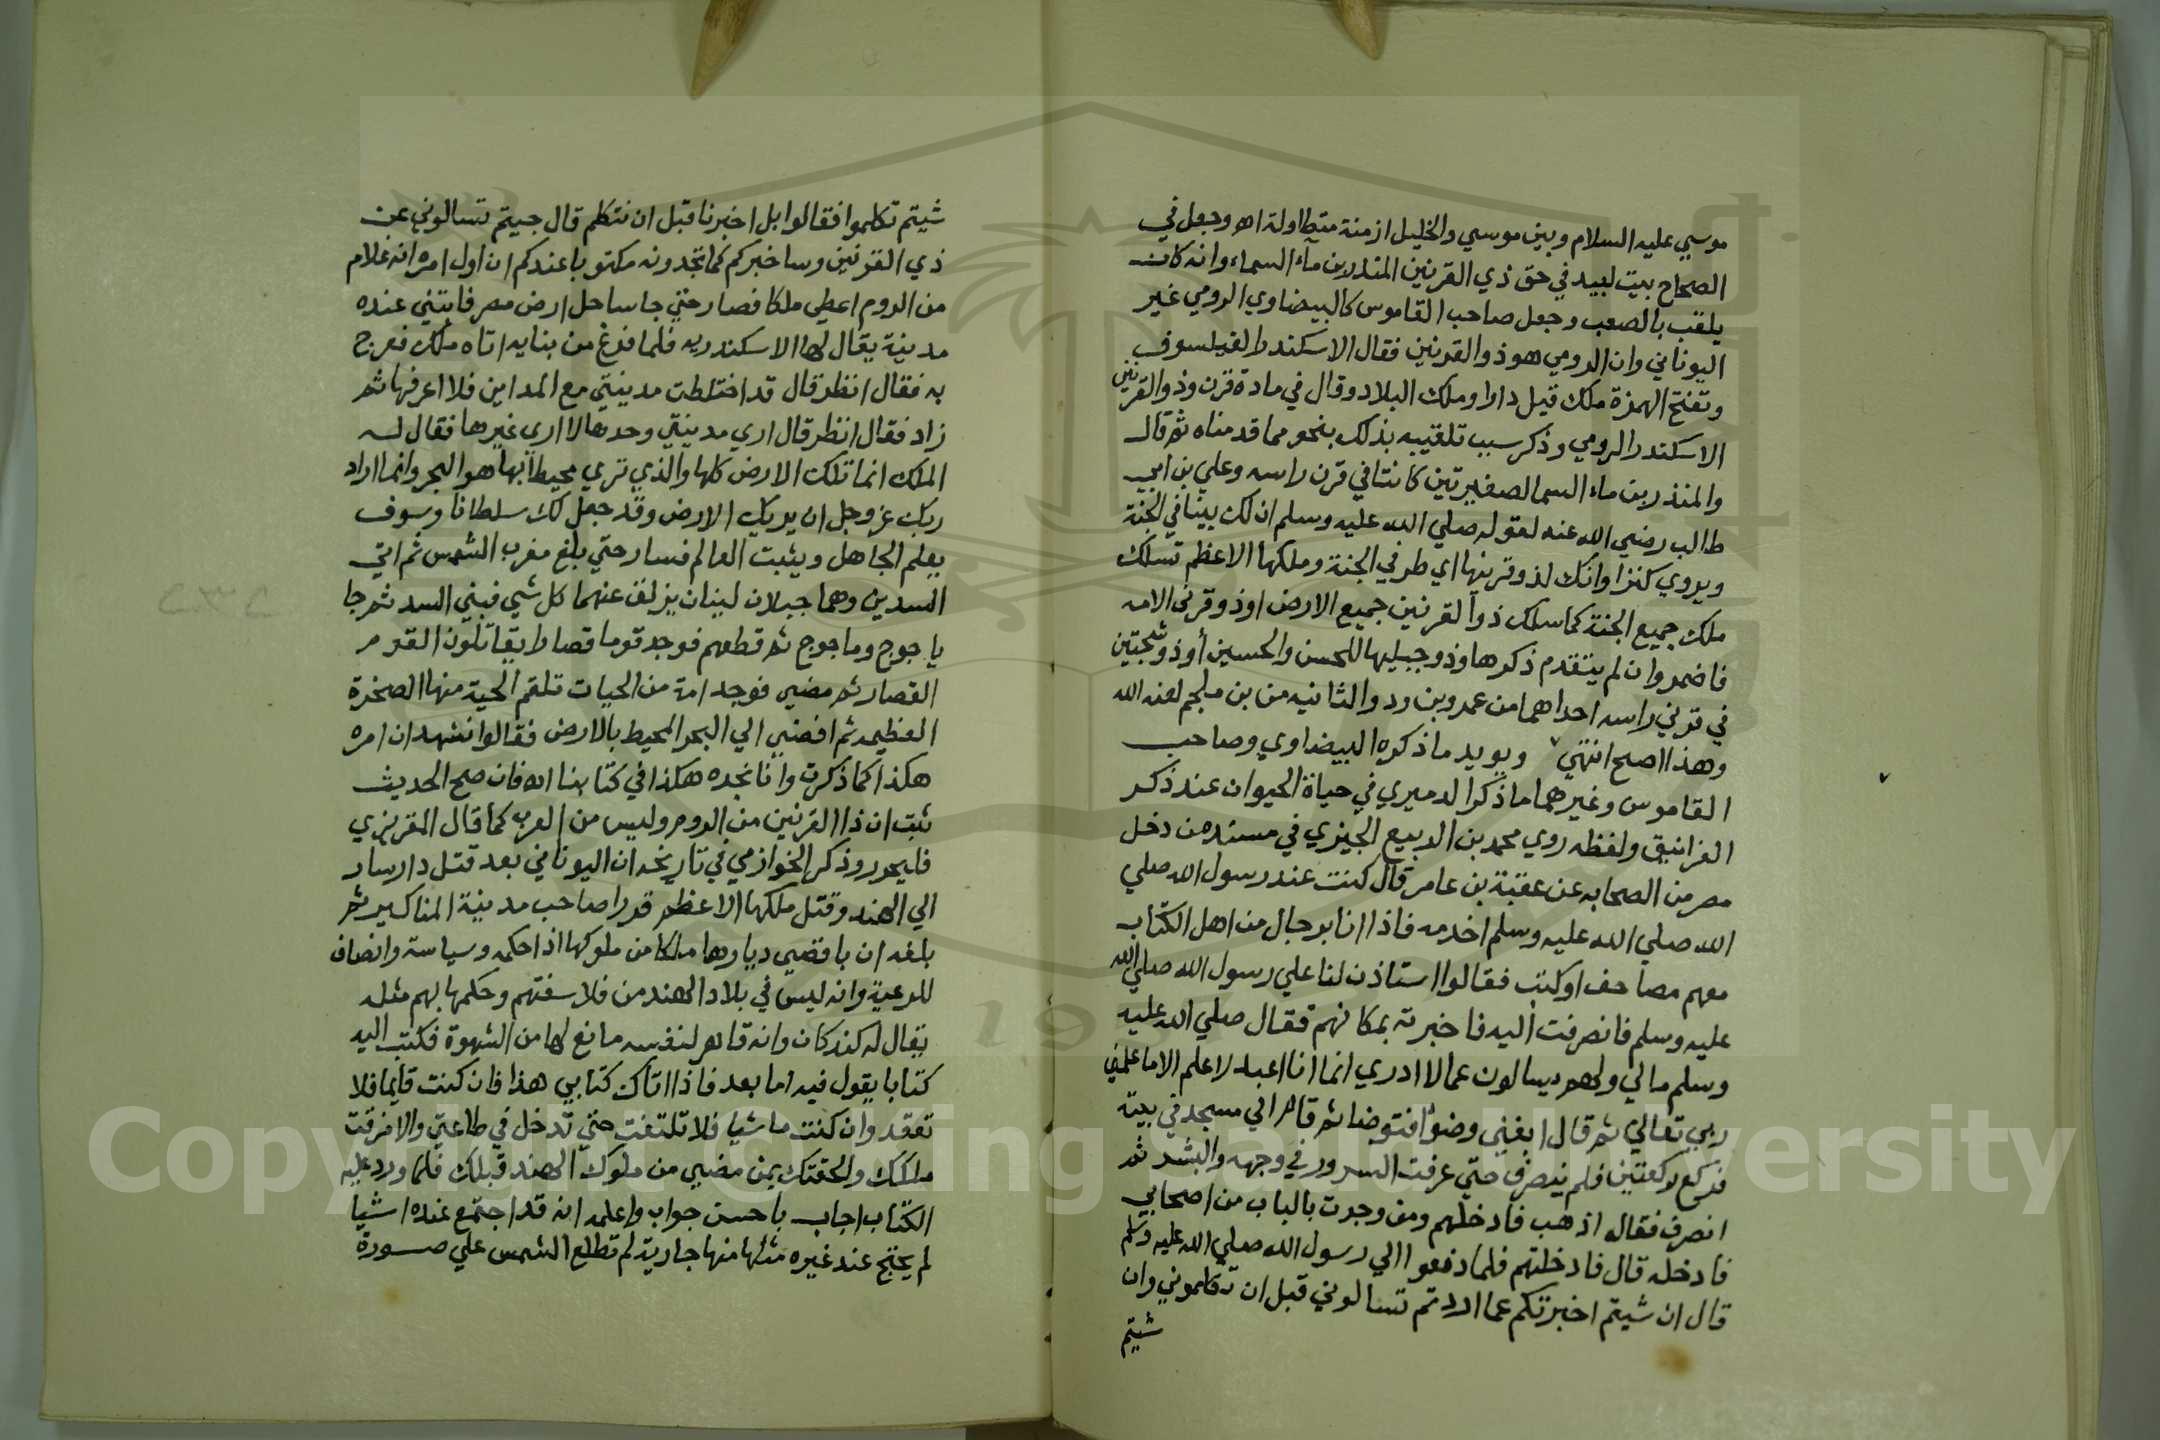 موسي عليه السلام وبين موسي والخليل ازمنة متطاولة اه وجعل في
الصحاح بيت لبيد في حق ذي القرنين المنذر بن مآء السماء وانه كان
يلقب بالصعب وجعل صاحب القاموس كالبيضاوي الرومي غير
اليوناني وان الرومي هو ذو القرنين فقال الاسكندر الفيلسوف
وتفتح الهمزة ملك قتل دارا وملك البلاد وقال في مادة قرن وذو القرنين
الاسكندر الرومي وذكر سبب تلقيبه بذلك بنحو مما قدمناه ثم قال
والمنذر بن ماء السما لضفيرتين كانتا في قرن راسه وعلي بن ابي
طالب رضي الله عنه لقوله صلي الله عليه وسلم ان لك بيتا في الجنة
ويروي كنزا وانك لذو قرنيها اي طرفي الجنة وملكها الاعظم تسلك
ملك جميع الجنة كما سلك ذو القرنين جميع الارض او ذو قرني الامه
فاضمر وان لم يتقدم ذكرها وذو جبليها للحسن والحسين أو ذو شجتين
في قرني راسه احداهما من عمرو بن ود والثانيه من بن ملجم لعنه الله
وهذا اصح انتهي ويويد ما ذكره البيضاوي وصاحب
القاموس وغيرهما ما ذكر الدميري في حياة الحيوان عند ذكر
الغرانيق ولفظه روي محمد بن الربيع الجيزي في مسنده من دخل
مصر من الصحابه عن عقبة بن عامر قال كنت عند رسول الله صلي
الله صلي الله عليه وسلم اخدمه فاذا انا برجال من اهل الكتاب
معهم مصاحف او كتب فقالوا استاذن لنا علي رسول الله صلي الله
عليه وسلم فانصرفت اليه فاخبرته بمكانهم فقال صلي الله عليه
وسلم مالي ولهم يسالون عما لا ادري انما انا عبد لا علم الا ما علمني
ربي تعالي ثم قال ابغني وضوا فتوضا ثم قام الي مسجد في بيته
فركع ركعتين فلم ينصرف حتي عرفت السرور في وجهه والبشر ثم
انصرف فقال اذهب فادخلهم ومن وجدت بالباب من اصحابي
فادخله قال فادخلتهم فلما دفعوا الي رسول الله صلي الله عليه وسلم
قال ان شيتم اخبرتكم عما اردتم تسالوني قبل ان تكلموني وان
شيتم
شيتم تكلموا فقالوا بل اخبرنا قبل ان نتكلم قال جيتم تسالوني عن
ذي القرنين وساخبركم كما تجدونه مكتوبا عندكم ان اول امره انه غلام
من الروم اعطي ملكا فصار حتي جا ساحل ارض مصر فابتني عنده
مدينة يقال لها الاسكندريه فلما فرغ من بنايه اتاه ملك فعرج
به فقال انظر قال قد اختلطت مدينتي مع المداين فلا اعرفها ثم
زاد فقال انظر قال اري مدينتي وحدها لا اري غيرها فقال له
الملك انما تلك الارض كلها والذي تري محيطا بها هو البحر وانما اراد
ربك عز وجل ان يريك الارض وقد جعل لك سلطانا وسوف
يعلم الجاهل ويثبت العالم فسار حتي بلغ مغرب الشمس ثم اتي
السدين وهما جبلان لينان يزلق عنهما كل شي فبني السد ثم جا
ياجوج وماجوج ثم قطعهم فوجد قوما قصارا يقاتلون القوم
القصار ثم مضي فوجد امة من الحيات تلقم الحية منها الصخرة
العظيمه ثم افضي الي البحر المحيط بالارض فقالوا نشهد ان امره
هكذا كما ذكرت وانا نجده هكذا في كتابنا اه فان صح الحديث
ثبت ان ذا القرنين من الروم وليس من العرب كما قال المقريزي
فليحرر وذكر الخوازمي في تاريخه ان اليوناني بعد قتل دار سار
الي الهند وقتل ملكها الاعظم فورا صاحب مدينة المناكير ثم
بلغه ان باقصي ديارها ملكا من ملوكها اذا حكمه وسياسة وانصاف
للرعية وانه ليس في بلاد الهند من فلاسفتهم وحكمها بهم مثله
يقال له كند كان وانه قاهر لنفسه مانع لها من الشهوة فكتب اليه
كتابا يقول فيه اما بعد فاذا اتاك كتابي هذا فان كنت قايما فلا
تقعد وان كنت ماشيا فلا تلتفت حتي تدخل في طاعتي والا فرقت
ملكك والحقتك بمن مضي من ملوك الهند قبلك فلما ورد عليه
الكتاب اجاب باحسن جواب واعلمه انه قد اجتمع عنده اشيا
لم يجتمع عند غيره مثلها منها جارية لم تطلع الشمس علي صورة
1957
Copyright © King Saud University